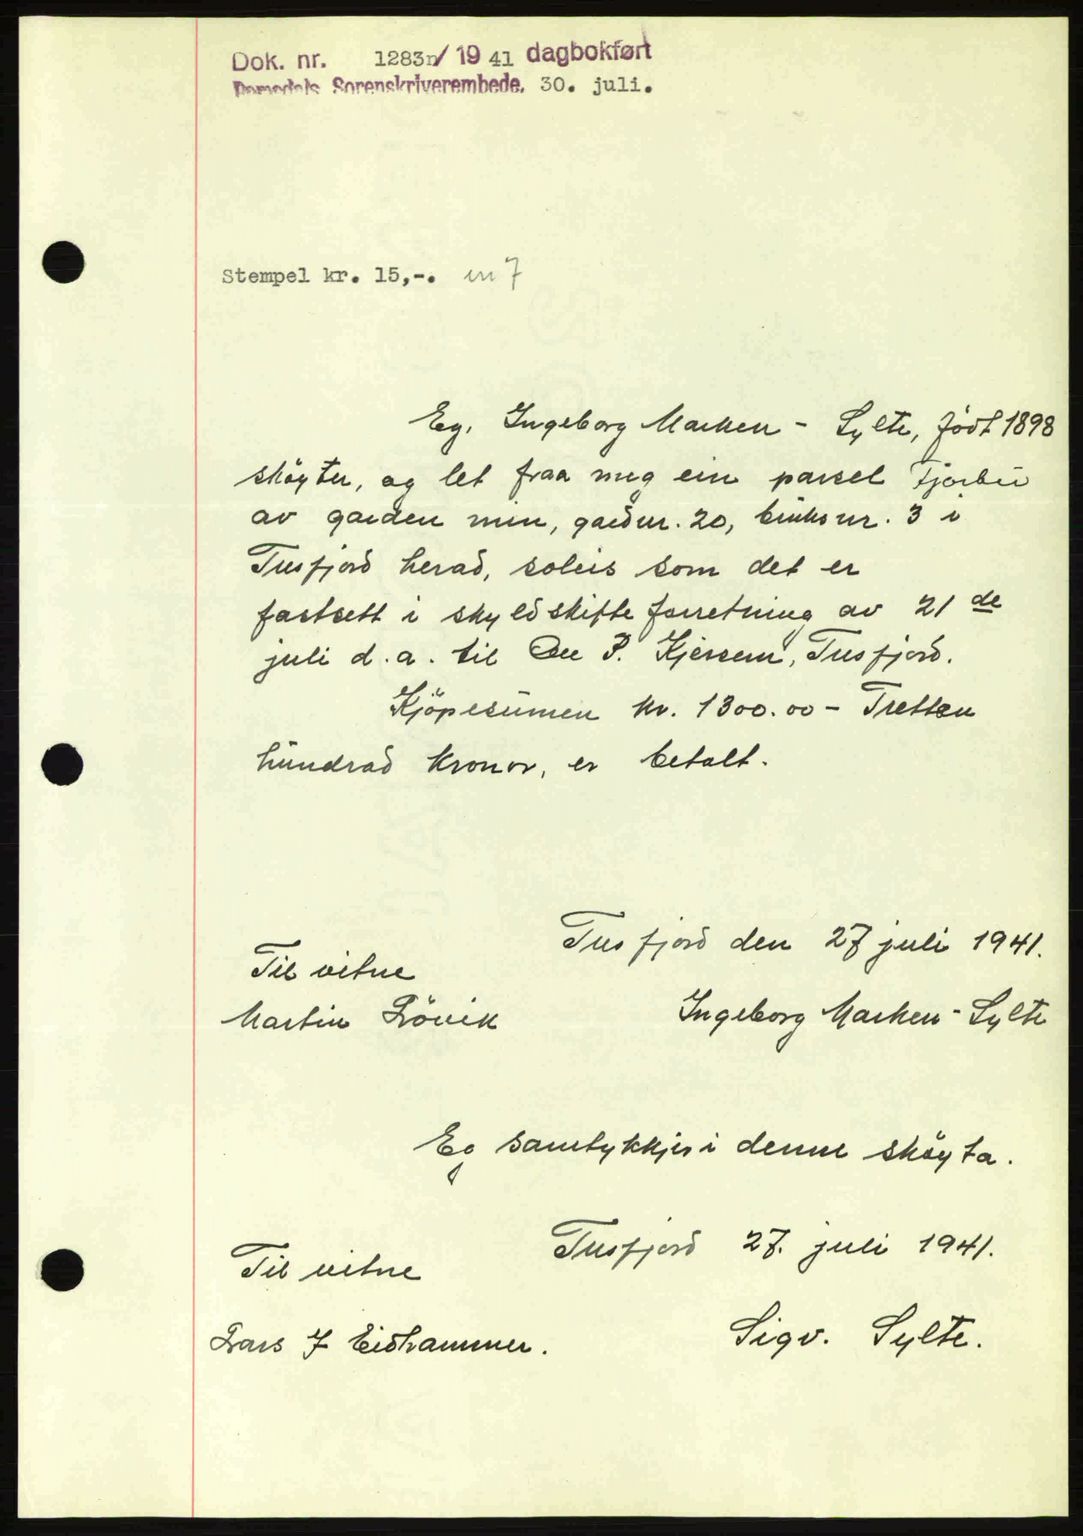 Dok. nr. 1283n/1941 dagbokført
Romsdals Sorenskriverembede. 30. juli.
Stempel kr. 15,-.
Eg, Ingeborg Marken - Sylte, født 1898
skøyter, og let fraa meg ein parsel Fjorbu
av garden min, gardnr. 20, bruksnr. 3 i
Tresfjord herad, soleis som det er
fastsett i skyldskifteforretning av 21 de
juli d.a. til P. Kjersem, Tresfjord.
Kjöpesumen kr. 1300.00 - Tretten
hundrad kronor, er betalt.
Tresfjord den 27 juli 1941.
Til vitne
Martin Løvik
Ingeborg Marken - Sylte
Eg samtykkjer i denne skøyta.
Tresfjord 27. juli 1941.
Til vitne
Lars J Eidhammer.
Sigv. Sylte.